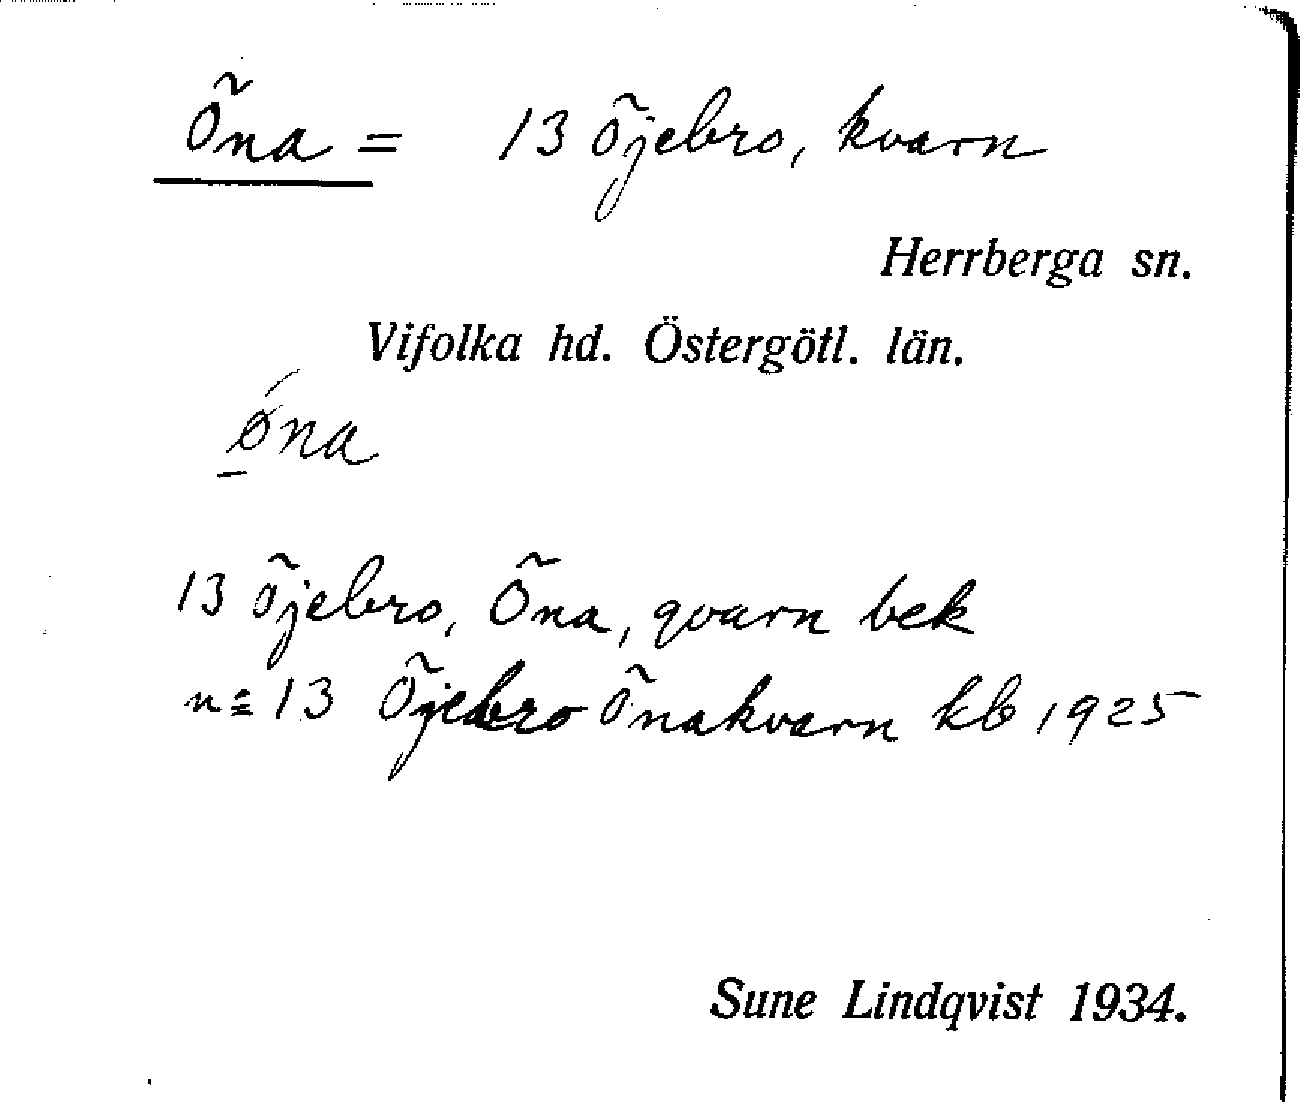 Õna = 13 Õjebro, kvarn
Herrberga sn.
Vifolka hd. Östergötl. län.
ǿna
13 Õjebro, Õna, qvarn bek
n = 13 Õjebro Õnakvarn kb 1925
Sune Lindqvist 1934.